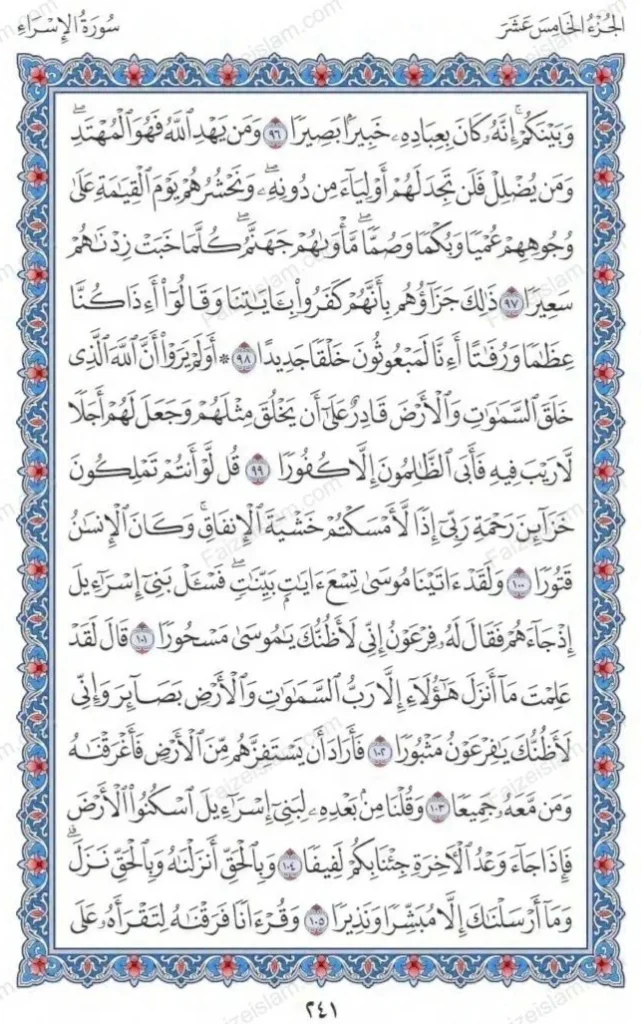 الجُزْءُ الخَامِسَ عَشَرَ
سُورَةُ الإِسْرَاءِ
وَبَيْنَكُمْ إِنَّهُۥ كَانَ بِعِبَادِهِۦ خَبِيرًۢا بَصِيرًا ٩٦ وَمَن يَهْدِ ٱللَّهُ فَهُوَ ٱلْمُهْتَدِ ۖ
وَمَن يُضْلِلْ فَلَن تَجِدَ لَهُمْ أَوْلِيَآءَ مِن دُونِهِۦ ۖ وَنَحْشُرُهُمْ يَوْمَ ٱلْقِيَٰمَةِ عَلَىٰ
وُجُوهِهِمْ عُمْيًا وَبُكْمًا وَصُمًّا ۖ مَّأْوَىٰهُمْ جَهَنَّمُ ۖ كُلَّمَا خَبَتْ زِدْنَٰهُمْ
سَعِيرًا ٩٧ ذَٰلِكَ جَزَآؤُهُم بِأَنَّهُمْ كَفَرُوا۟ بِـَٔايَٰتِنَا وَقَالُوٓا۟ أَءِذَا كُنَّا
عِظَٰمًا وَرُفَٰتًا أَءِنَّا لَمَبْعُوثُونَ خَلْقًا جَدِيدًا ٩٨ * أَوَلَمْ يَرَوْا۟ أَنَّ ٱللَّهَ ٱلَّذِى
خَلَقَ ٱلسَّمَٰوَٰتِ وَٱلْأَرْضَ قَادِرٌ عَلَىٰٓ أَن يَخْلُقَ مِثْلَهُمْ وَجَعَلَ لَهُمْ أَجَلًا
لَّا رَيْبَ فِيهِ فَأَبَى ٱلظَّٰلِمُونَ إِلَّا كُفُورًا ٩٩ قُل لَّوْ أَنتُمْ تَمْلِكُونَ
خَزَآئِنَ رَحْمَةِ رَبِّىٓ إِذًا لَّأَمْسَكْتُمْ خَشْيَةَ ٱلْإِنفَاقِ ۚ وَكَانَ ٱلْإِنسَٰنُ
قَتُورًا ١٠٠ وَلَقَدْ ءَاتَيْنَا مُوسَىٰ تِسْعَ ءَايَٰتٍۭ بَيِّنَٰتٍ ۖ فَسْـَٔلْ بَنِىٓ إِسْرَٰٓءِيلَ
إِذْ جَآءَهُمْ فَقَالَ لَهُۥ فِرْعَوْنُ إِنِّى لَأَظُنُّكَ يَٰمُوسَىٰ مَسْحُورًا ١٠١ قَالَ لَقَدْ
عَلِمْتَ مَآ أَنزَلَ هَٰٓؤُلَآءِ إِلَّا رَبُّ ٱلسَّمَٰوَٰتِ وَٱلْأَرْضِ بَصَآئِرَ وَإِنِّى
لَأَظُنُّكَ يَٰفِرْعَوْنُ مَثْبُورًا ١٠٢ فَأَرَادَ أَن يَسْتَفِزَّهُم مِّنَ ٱلْأَرْضِ فَأَغْرَقْنَٰهُ
وَمَن مَّعَهُۥ جَمِيعًا ١٠٣ وَقُلْنَا مِنۢ بَعْدِهِۦ لِبَنِىٓ إِسْرَٰٓءِيلَ ٱسْكُنُوا۟ ٱلْأَرْضَ
فَإِذَا جَآءَ وَعْدُ ٱلْـَٔاخِرَةِ جِئْنَا بِكُمْ لَفِيفًا ١٠٤ وَبِٱلْحَقِّ أَنزَلْنَٰهُ وَبِٱلْحَقِّ نَزَلَ ۗ
وَمَآ أَرْسَلْنَٰكَ إِلَّا مُبَشِّرًا وَنَذِيرًا ١٠٥ وَقُرْءَانًا فَرَقْنَٰهُ لِتَقْرَأَهُۥ عَلَى
٢٤١
Faizeislam.com